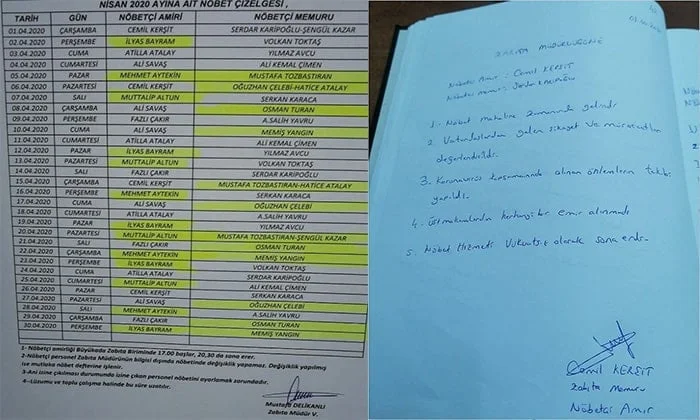 NİSAN 2020 AYINA AİT NÖBET ÇİZELGESİ,
TARİH GÜN NÖBETÇİ AMİRİ NÖBETÇİ MEMURU
01.04.2020 ÇARŞAMBA CEMİL KERŞİT SERDAR KARİPOĞLU-ŞENGÜL KAZAR
02.04.2020 PERŞEMBE İLYAS BAYRAM VOLKAN TOKTAŞ
03.04.2020 CUMA ATİLLA ATALAY YILMAZ AVCU
04.04.2020 CUMARTESİ ALİ SAVAŞ ALİ KEMAL ÇİMEN
05.04.2020 PAZAR MEHMET AYTEKİN MUSTAFA TOZBASTIRAN
06.04.2020 PAZARTESİ CEMİL KERŞİT OĞUZHAN ÇELEBİ-HATİCE ATALAY
07.04.2020 SALI MUTTALİP ALTUN SERKAN KARACA
08.04.2020 ÇARŞAMBA ALİ SAVAŞ OSMAN TURAN
09.04.2020 PERŞEMBE FAZLI ÇAKIR A.SALİH YAVRU
10.04.2020 CUMA ALİ SAVAŞ MEMİŞ YANGIN
11.04.2020 CUMARTESİ ATİLLA ATALAY ALİ KEMAL ÇİMEN
12.04.2020 PAZAR İLYAS BAYRAM YILMAZ AVCU
13.04.2020 PAZARTESİ MUTTALİP ALTUN VOLKAN TOKTAŞ
14.04.2020 SALI FAZLI ÇAKIR SERDAR KARİPOĞLU
15.04.2020 ÇARŞAMBA CEMİL KERŞİT MUSTAFA TOZBASTIRAN-HATİCE ATALAY
16.04.2020 PERŞEMBE MEHMET AYTEKİN SERKAN KARACA
17.04.2020 CUMA ALİ SAVAŞ OĞUZHAN ÇELEBİ
18.04.2020 CUMARTESİ ATİLLA ATALAY A.SALİH YAVRU
19.04.2020 PAZAR İLYAS BAYRAM YILMAZ AVCU
20.04.2020 PAZARTESİ MUTTALİP ALTUN MUSTAFA TOZBASTIRAN-ŞENGÜL KAZAR
21.04.2020 SALI FAZLI ÇAKIR OSMAN TURAN
22.04.2020 ÇARŞAMBA MEHMET AYTEKİN MEMİŞ YANGIN
23.04.2020 PERŞEMBE İLYAS BAYRAM VOLKAN TOKTAŞ
24.04.2020 CUMA ATİLLA ATALAY SERDAR KARİPOĞLU
25.04.2020 CUMARTESİ MUTTALİP ALTUN ALİ KEMAL ÇİMEN
26.04.2020 PAZAR CEMİL KERŞİT SERKAN KARACA
27.04.2020 PAZARTESİ ALİ SAVAŞ OĞUZHAN ÇELEBİ
28.04.2020 SALI MEHMET AYTEKİN A.SALİH YAVRU
29.04.2020 ÇARŞAMBA FAZLI ÇAKIR OSMAN TURAN
30.04.2020 PERŞEMBE İLYAS BAYRAM MEMİŞ YANGIN
1- Nöbetçi amirliği Büyükada Zabıta Biriminde 17.00 başlar, 20,30 da sona erer.
2-Nöbetçi personel Zabıta Müdürünün bilgisi dışında nöbetinde değişiklik yapamaz. Değişiklik yapılmış
ise mutlaka nöbet defterine işlenir.
3-Ani izine çıkılması durumunda izine çıkan personel nöbetini ayarlamak zorundadır.
4-Lüzumu ve toplu çalışma halinde bu süre uzatılır.
Mustafa DELİKANLI
Zabıta Müdür V.
ZABITA MÜDÜRLÜĞÜNE
Nöbetçi Amir : Cemil KERŞİT
Nöbetçi memur: Serdar KARİPOĞLU
1- Nöbet mahaline zamanında gelindi
2. Vatandaşlardan gelen şikayet ve müracaatlar
değerlendirildi.
3- Koronavirüs kapsamında alınan önlemlerin takibi
yapıldı.
4- Üst makamlardan herhangi bir emir alınmadı
5- Nöbet Hizmeti Vukuatsız olarak sona erdi-
Cemil KERŞİT
Zabıta Memuru
Nöbetçi Amir